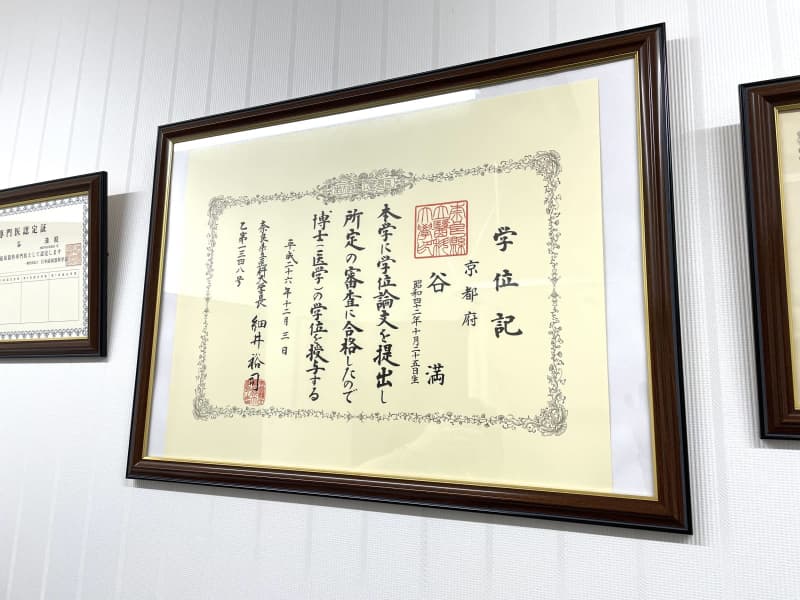 学位記
京都府
谷 満
昭和四十二年十月二十五日生
本学に学位論文を提出し
所定の審査に合格したので
博士（医学）の学位を授与する
平成二十六年十二月三日
奈良県立医科大学長 細井裕司
乙第一三四八号
専門医認定証